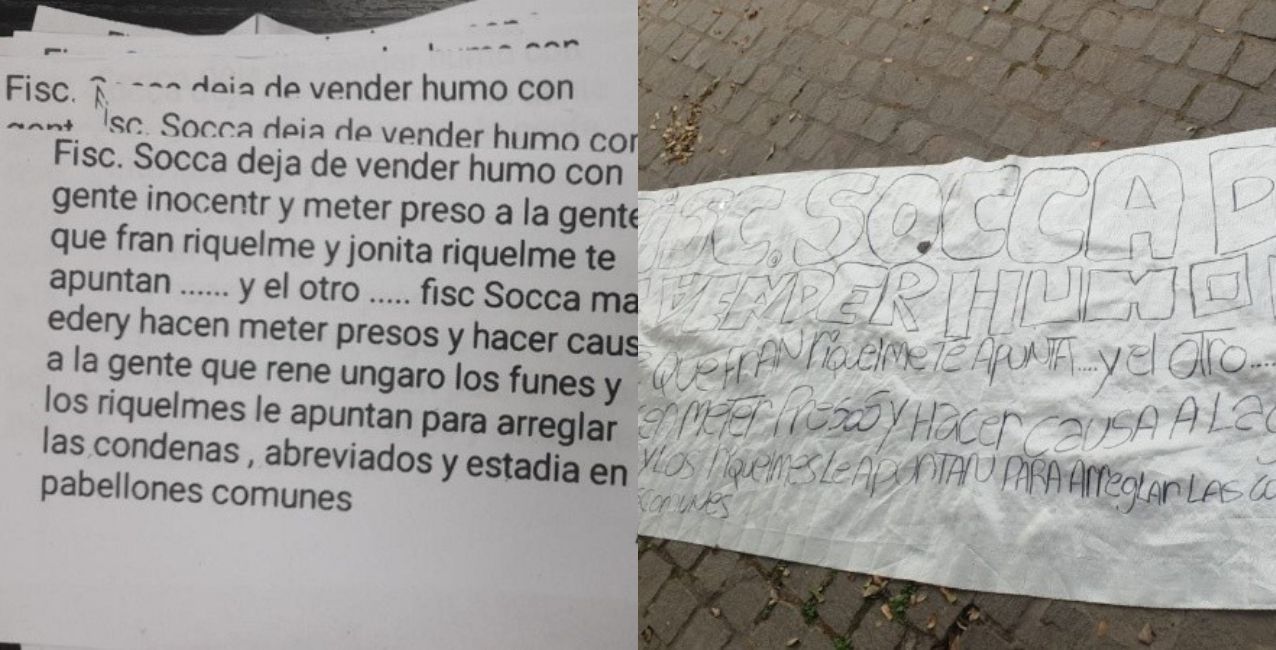 Fisc. deja de vender humo con
isc. Socca deja de vender humo con
Fisc. Socca deja de vender humo con
gente inocentr y meter preso a la gente
que fran riquelme y jonita riquelme te
apuntan ...... y el otro ..... fisc Socca ma
edery hacen meter presos y hacer caus
a la gente que rene ungaro los funes y
los riquelmes le apuntan para arreglar
las condenas , abreviados y estadia en
pabellones comunes
FISC. SOCCA D
VENDER HUMO
QUE FRAN Riquelme TE APUNTA....y el OTRO....
en METER PresoS y HACER CAUSA A LA
y LOS RiquelmesLe APUNTAN PARA ArreglAr LAS CO
Comunes